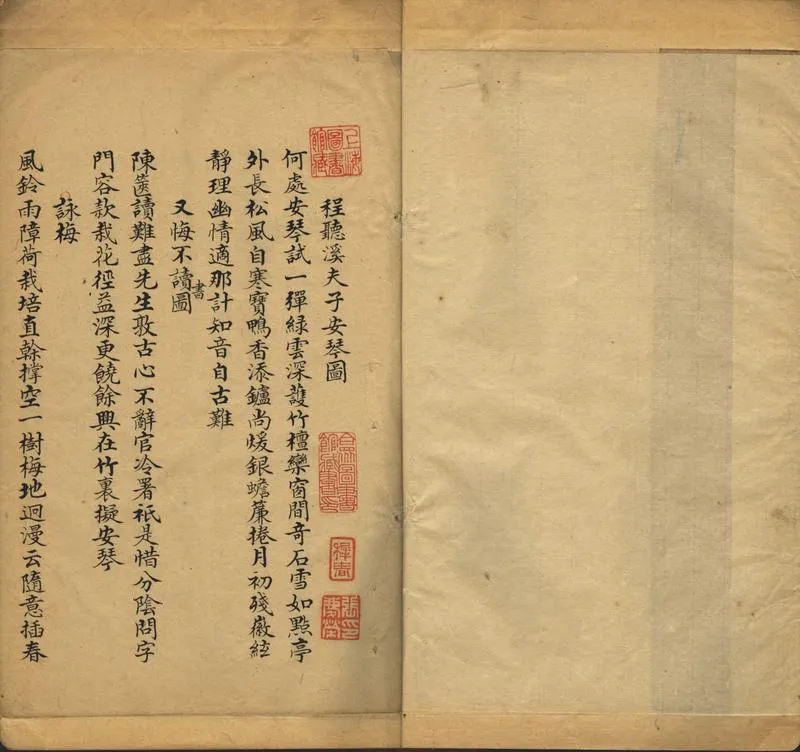 上海圖書館藏
程聽溪夫子安琴圖
何處安琴試一彈綠雲深護竹檀欒窗間竒石雪如點亭
外長松風自寒寶鴨香添鑪尚煖銀蟾簾捲月初殘徽絃
靜理幽情適那計知音自古難
又悔不讀書圖
陳篋讀難盡先生敦古心不辭官冷署祇是惜分陰問字
門容款栽花徑益深更饒餘興在竹裏擬安琴
詠梅
風鈴雨障荷栽培直幹撐空一樹梅地迥漫云隨意插春